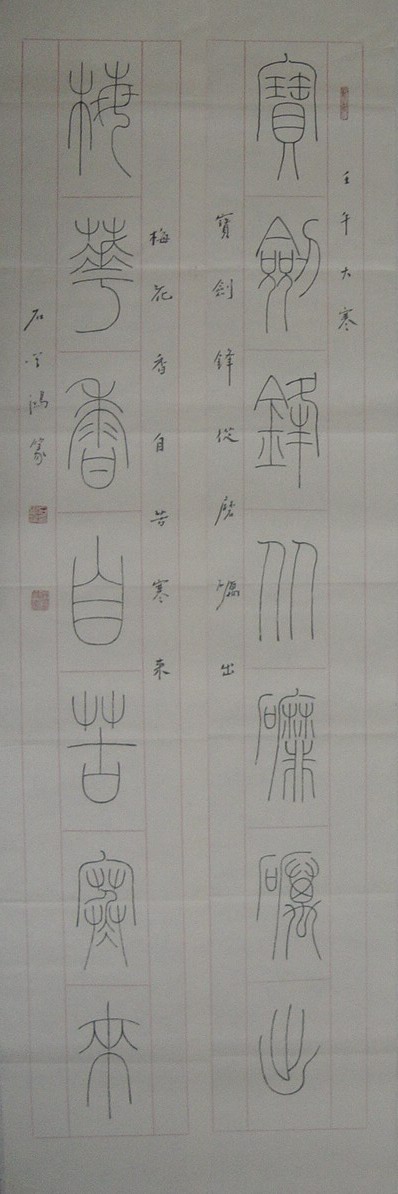 壬午大寒
寶劍鋒从磨礪出
寶劍鋒從磨礪出
梅花香自苦寒來
梅華香自苦寒來
鴻篆